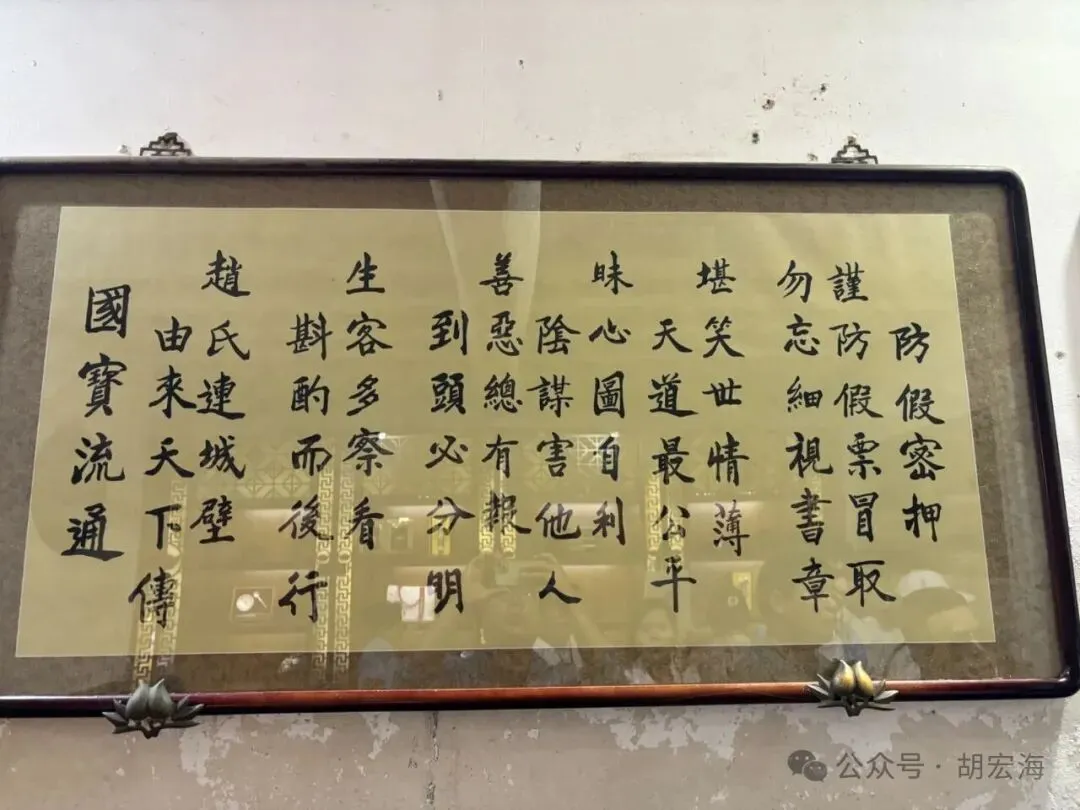 防假密押
謹防假票冒取
勿忘細視書章
堪笑世情薄
天道最公平
昧心圖自利
陰謀害他人
善惡總有報
到頭必分明
生客多察看
斟酌而後行
趙氏連城壁
由來天下傳
國寶流通
公众号·胡宏海